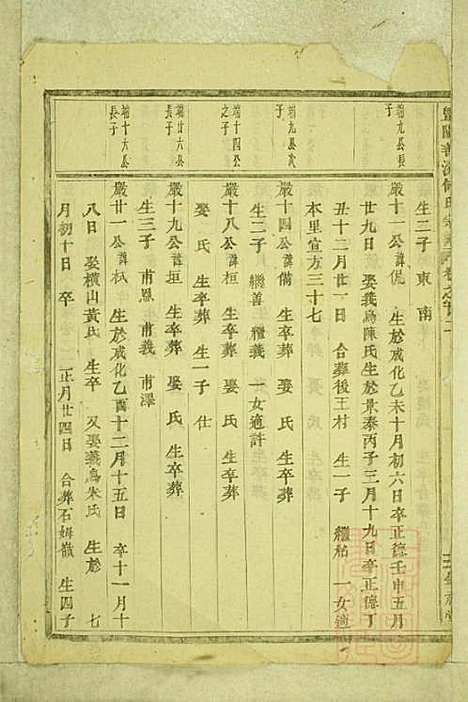 生二子 東 南
端九公長子
嚴十一公諱侃 生於成化乙未十月初六日卒正德壬申五月
廿九日 娶義烏陳氏生於景泰丙子三月十九日卒正德丁
丑十二月廿一日 合葬後王村 生一子 繼 一女適
本里宣方三十七
端九公次子
嚴十四公諱備 生卒葬 娶 氏 生卒葬
生二子 繼善 繼義 一女適許
端十四公之子
嚴十八公諱桓 生卒葬
娶 氏 生卒葬 生一子 仕
端廿六公長子
嚴十九公諱垣 生卒葬 娶 氏 生卒葬
生三子 甫恩 甫義 甫澤
端十六公長子
嚴廿一公諱栻 生於成化乙酉十二月十五日 卒十一月十
八日 娶橫山黃氏 生卒 又娶義烏朱氏 生於 七
月初十日 卒 正月廿四日 合葬石姆嶺 生四子